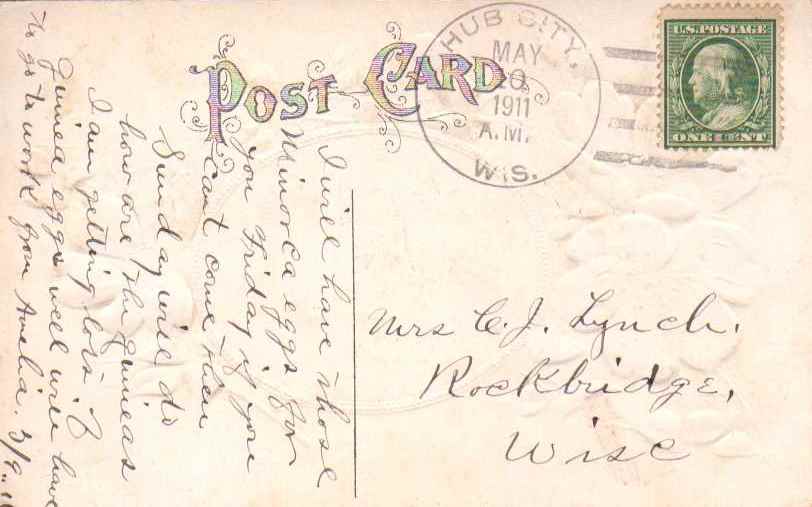 POST CARD
HUB CITY,
MAY
10
1911
A.M.
WIS.
U.S. POSTAGE
ONE CENT
I will have those
Minorca eggs for
you Friday if you
cant come then
Sunday will do
how are the guineas
I am getting lots of
Guinea eggs well will have
to go to work from Amelia. 5/9
Mrs C. J. Lynch.
Rockbridge,
Wisc